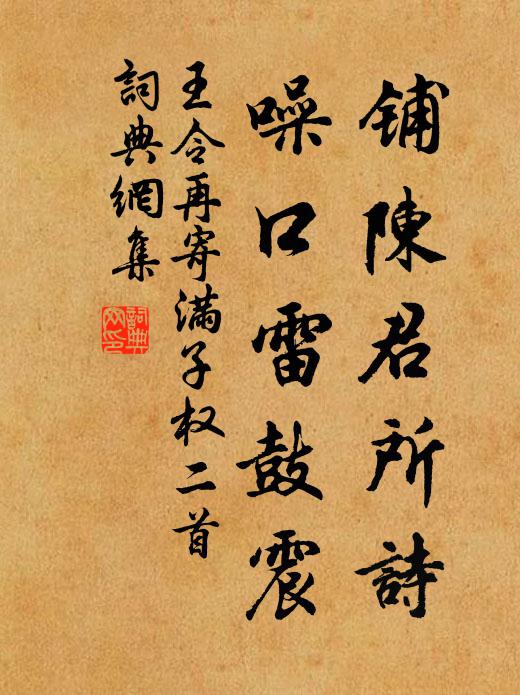 铺陳君所詩
噪口雷鼓震
王令再寄满子权二首
詞典網集
詞典網印